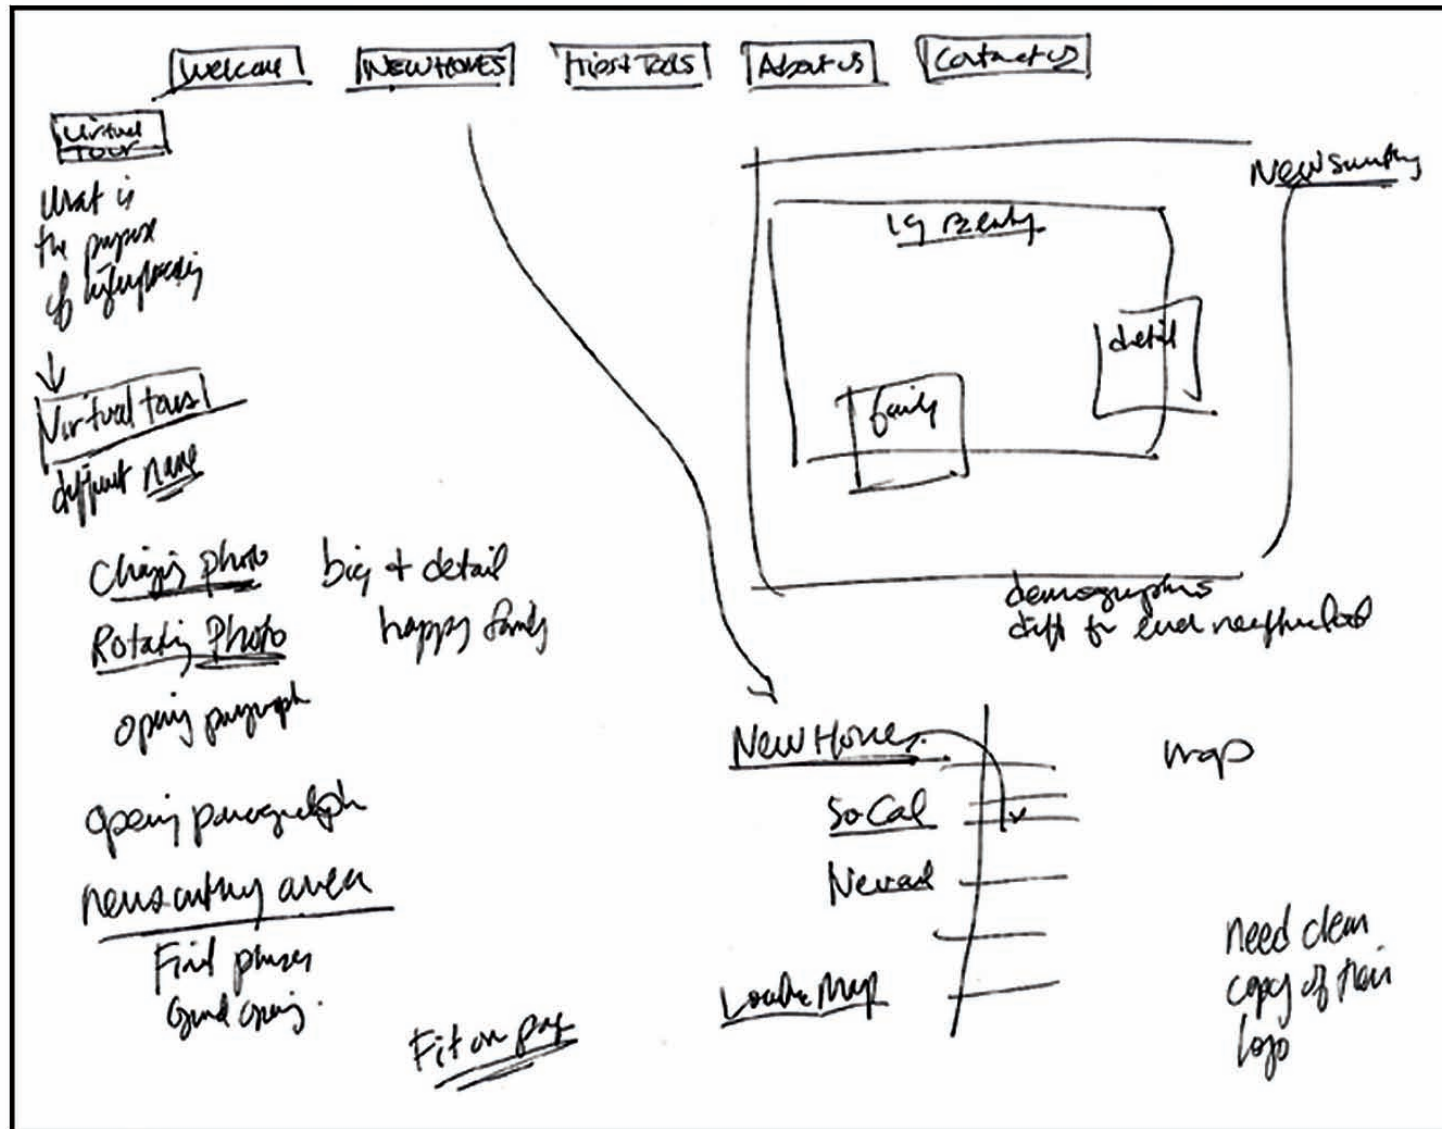 Welcome
NEW HOMES
Tips & Tools
About us
Contact us
Virtual
Tour
What is
the purpose
of
Virtual tours
different name
Changing photo
big + detail
Rotating Photo
happy family
opening paragraph
opening paragraph
area
Final phases
Grand opening.
Fit on page
lg
detail
family
demographics
diff for each neighborhood
New Homes
map
So Cal
Nevad
Locator Map
need clean
copy of their
logo